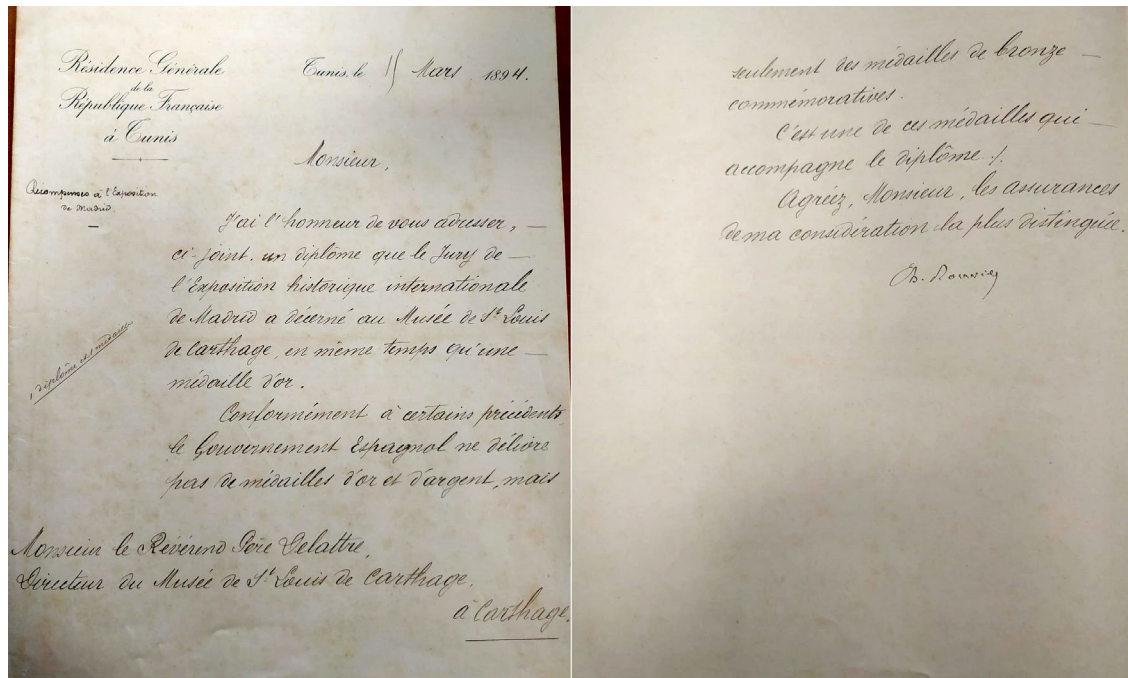 Résidence Générale
de la
République Française
à Tunis
Tunis, le 15 Mars 1894.
Monsieur,
Récompenses à l'Exposition
de Madrid
J'ai l'honneur de vous adresser, —
ci-joint, un diplôme que le Jury de —
l'Exposition historique internationale
de Madrid a décerné au Musée de St Louis
de Carthage, en même temps qu'une —
médaille d'or.
1 diplôme et 1 médaille
Conformément à certains précédents,
le Gouvernement Espagnol ne délivre
pas de médailles d'or et d'argent, mais
Monsieur le Révérend Père Delattre,
Directeur du Musée de St Louis de Carthage.
à Carthage.
seulement des médailles de bronze —
commémoratives.
C'est une de ces médailles qui —
accompagne le diplôme ./.
Agréez, Monsieur, les assurances
de ma considération la plus distinguée.